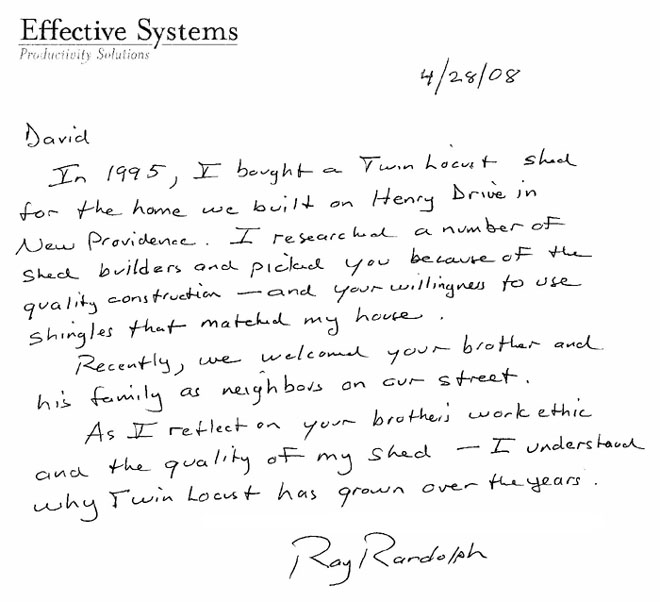 Effective Systems
Productivity Solutions
4/28/08
David
In 1995, I bought a Twin Locust shed
for the home we built on Henry Drive in
New Providence. I researched a number of
shed builders and picked you because of the
quality construction — and your willingness to use
shingles that matched my house.
Recently, we welcomed your brother and
his family as neighbors on our street.
As I reflect on your brother's work ethic
and the quality of my shed — I understand
why Twin Locust has grown over the years.
Ray Randolph